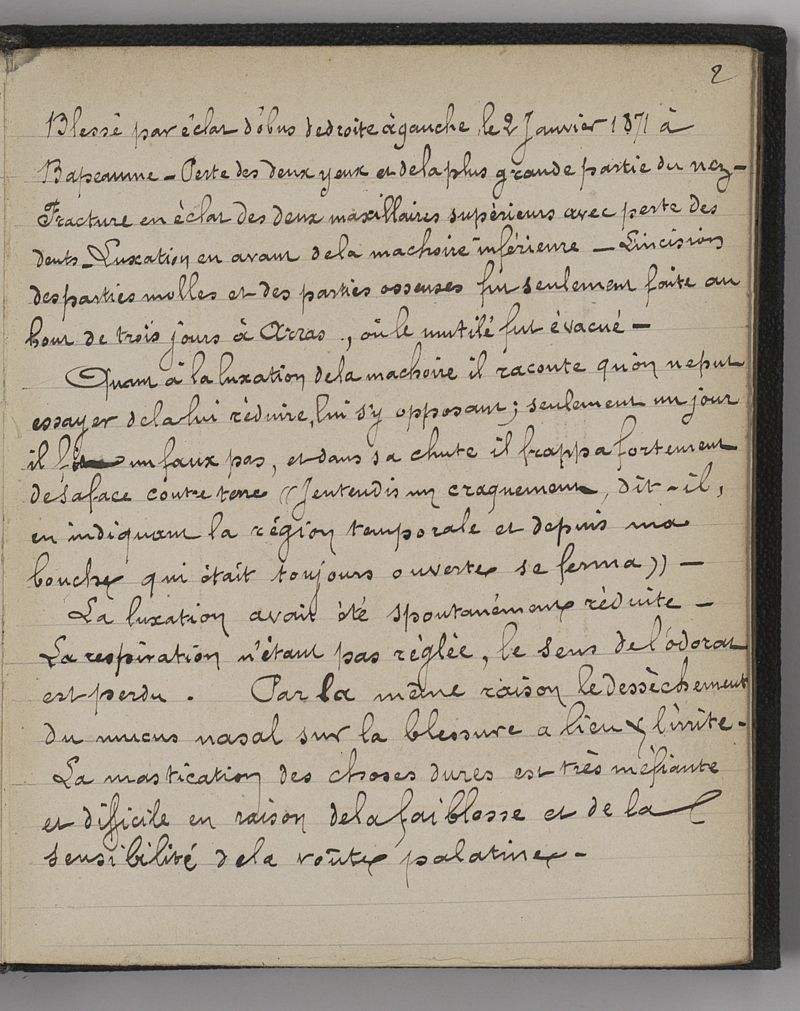 2
Blessé par éclat d'obus de droite à gauche, le 2 Janvier 1871 à
Bapeaume - Perte des deux yeux et de la plus grande partie du nez -
Fracture en éclat des deux maxillaires supérieurs avec perte des
dents - Luxation en avant de la machoire inférieure - L'incision
des parties molles et des parties osseuses fut seulement faite au
bout de trois jours à Arras, où le mutilé fut évacué -
Quant à la luxation de la machoire il raconte qu'on ne put
essayer de la lui réduire, lui s'y opposant; seulement un jour
il fit un faux pas, et dans sa chute il frappa fortement
de sa face contre terre ((J'entendis un craquement, dit-il,
en indiquant la région temporale et depuis ma
bouche qui était toujours ouverte se ferma)) -
La luxation avait été spontanément réduite -
La respiration n'étant pas réglée, le sens de l'odorat
est perdu. Par la même raison le dessèchement
du mucus nasal sur la blessure a lieu & l'irrite -
La mastication des choses dures est très méfiante
et difficile en raison de la faiblesse et de la
sensibilité de la voûte palatine -